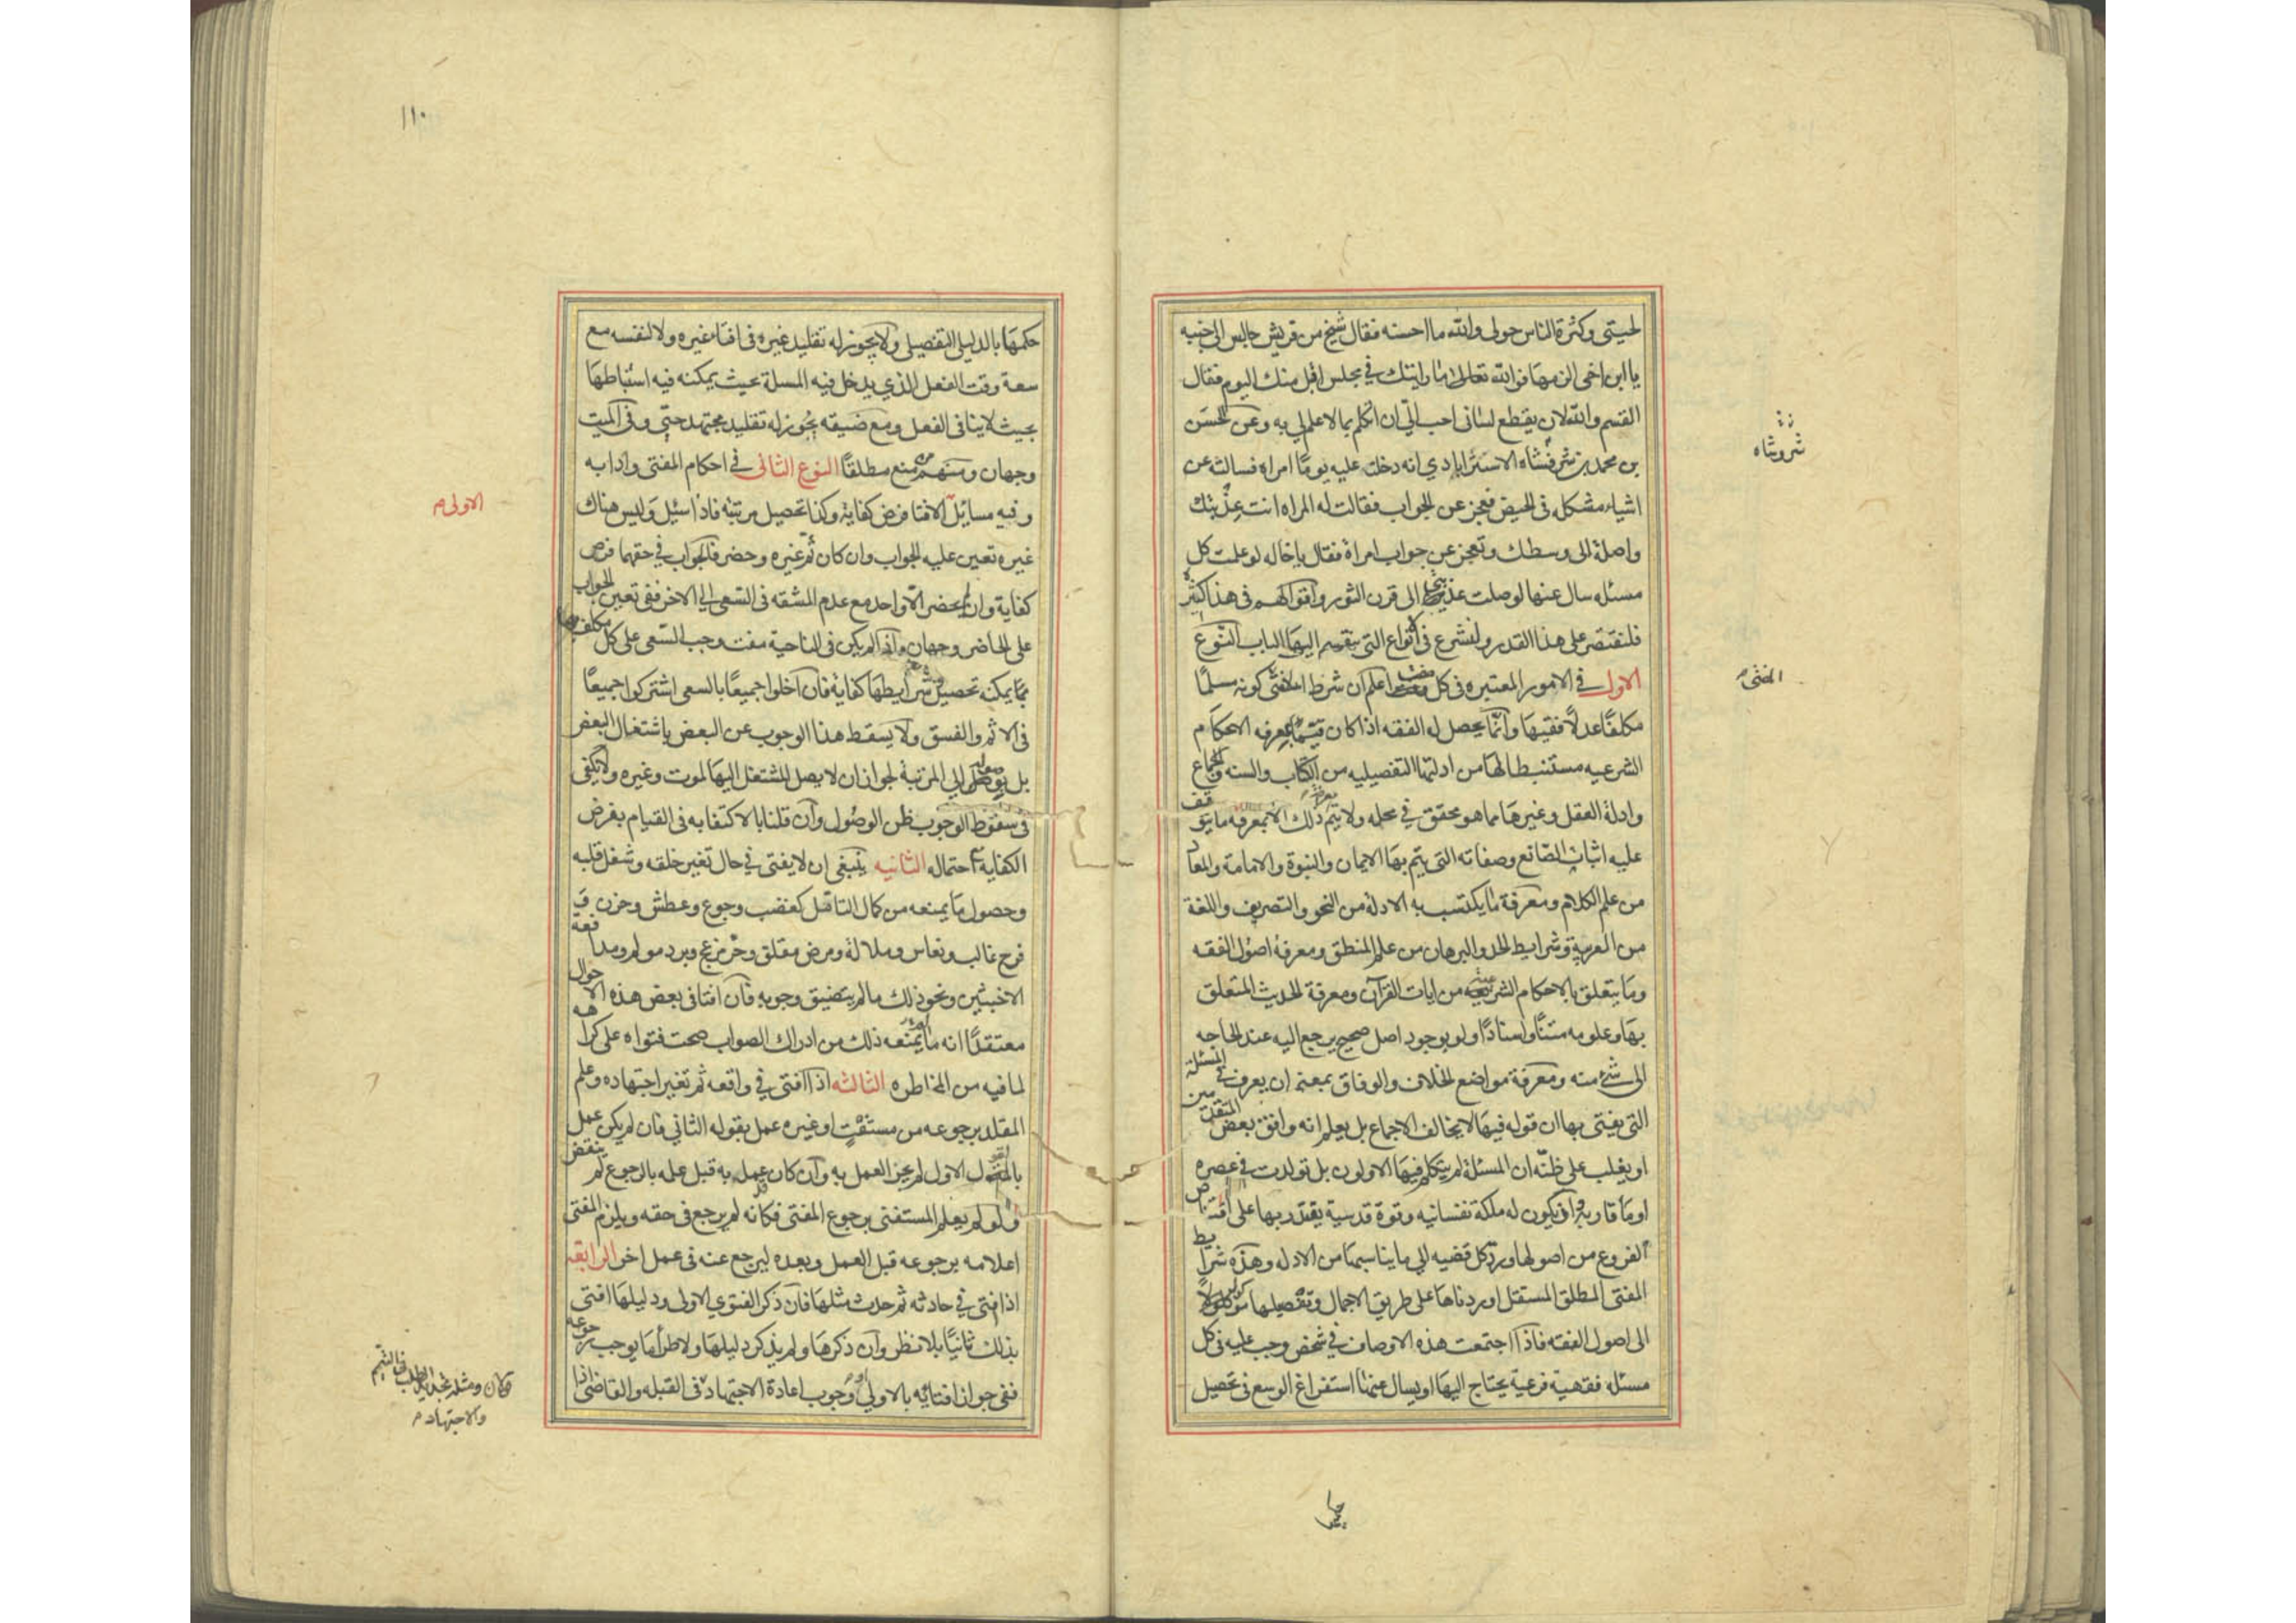 لحيتي وكثرة الناس حولي والله ما احسنه فقال شيخ من قريش جالس الى جنبه
يا ابن اخي الزمها فوالله تعالى ما رايتك في مجلس انبل منك اليوم فقال
القسم والله لان يقطع لساني احب الي ان اتكلم بما لا علم لي به وعن الحسن
بن محمد بن شرفشاه الاسترابادي انه دخلت عليه يوما امراه فسالته عن
اشياء مشكله في الحيض فعجز عن الجواب فقالت له المراه انت عذبتك
واصلة الى وسطك وتعجز عن جواب امراة فقال يا خاله لو علمت كل
مسئله سال عنها لوصلت عذبتي الى قرن الثور واقوالهم في هذا كثيرة
فلنقتصر على هذا القدر ولنشرع في الانواع التي ينقسم اليها الباب النوع
الاول في الامور المعتبره في كل مفت اعلم ان شرط المفتي كونه مسلما
مكلفا عدلا فقيها وانما يحصل له الفقه اذا كان قيما بمعرفه الاحكام
الشرعيه مستنبطا لها من ادلتها التفصيليه من الكتاب والسنه والاجماع
وادلة العقل وغيرها مما هو محقق في محله ولا يتم ذلك الا بمعرفه ما يتوقف
عليه اثبات الصانع وصفاته التي يتم بها الايمان والنبوة والامامة والمعاد
من علم الكلام ومعرفة ما يكتسب به الادلة من النحو والتصريف واللغة
من العربية وشرايط الحد والبرهان من علم المنطق ومعرفة اصول الفقه
وما يتعلق بالاحكام الشرعيه من ايات القرآن ومعرفة الحديث المتعلق
بها وعلومه متنا واسنادا ولو بوجود اصل صحيح يرجع اليه عند الحاجه
الى شئ منه ومعرفة مواضع الخلاف والوفاق بمعنى ان يعرف في المسئلة
التي يفتي بها ان قوله فيها لا يخالف الاجماع بل يعلم انه وافق بعض المتقدمين
او يغلب على ظنه ان المسئلة لم يتكلم فيها الاولون بل تولدت في عصره
او ما قاربه وان يكون له ملكة نفسانيه وقوة قدسية يقتدر بها على اقتناص
الفروع من اصولها ورد كل قضيه الي ما يناسبها من الادله وهذه شرايط
المفتي المطلق المستقل اوردناها على طريق الاجمال وتفصيلها موكول
الى اصول الفقه فاذا اجتمعت هذه الاوصاف في شخص وجب عليه في كل
مسئله فقهية فرعية يحتاج اليها او يسال عنها استفراغ الوسع في تحصيل
شروشاه
المفتي
١١٠
حكمها بالدليل التفصيلي ولا يجوز له تقليد غيره في افتاء غيره ولا لنفسه مع
سعة وقت الفعل الذي يدخل فيه المسلة بحيث يمكنه فيه استنباطها
بحيث لا ينافي الفعل ومع ضيقه يجوز له تقليد مجتهد حتي وفي الميت
وجهان ومنهم من منع مطلقا النوع الثاني في احكام المفتي وادابه
وفيه مسائل الافتا فرض كفاية وكذا تحصيل مرتبته فاذا سئل وليس هناك
غيره تعين عليه الجواب وان كان ثم غيره وحضر فالجواب في حقهما فرض
كفاية وان لم يحضر الا واحد مع عدم المشقه في السعي الي الاخر ففي تعين الجواب
على الحاضر وجهان واذا لم يكن في الناحية مفت وجب السعي على كل مكلف بها
يمكنه تحصيل شرايطها كفاية فان اخلوا جميعا بالسعي اشتركوا جميعا
في الاثم والفسق ولا يسقط هذا الوجوب عن البعض باشتغال البعض
بل بوصوله الي المرتبة لجواز ان لا يصل المشتغل اليها لموت وغيره ولا يكفي
في سقوط الوجوب ظن الوصول وان قلنا بالاكتفا به في القيام بفرض
الكفاية احتماله الثانيه ينبغي ان لا يفتي في حال تغير خلقه وشغل قلبه
وحصول ما يمنعه من كمال التامل كغضب وجوع وعطش وحزن و
فرح غالب ونعاس وملالة ومرض مقلق وحر مزعج وبرد مولم ومدافعة
الاخبثين ونحو ذلك ما لم يتضيق وجوبه فان افتا في بعض هذه الاحوال
معتقدا انه لم يمنعه ذلك من ادراك الصواب صحت فتواه على كراهه
لما فيه من المخاطره الثالثه اذا افتي في واقعه ثم تغير اجتهاده وعلم
المقلد برجوعه من مستفت او غيره عمل بقوله الثاني فان لم يكن عمل
بالقول الاول لم يجز العمل به وان كان عمل به قبل علمه بالرجوع لم ينقض
ولو لم يعلم المستفتي برجوع المفتي فكانه لم يرجع في حقه ويلزم المفتي
اعلامه برجوعه قبل العمل وبعده ليرجع عنه في عمل اخر الرابعة
اذا افتى في حادثه ثم حدث مثلها فان ذكر الفتوي الاولى ودليلها افتى
بذلك ثانيا بلا نظر وان ذكرها ولم يذكر دليلها ولا طرا ما يوجب رجوعه
ففي جواز افتائه بالاولي او وجوب اعادة الاجتهاد في القبله والقاضي اذا
الاولى
والاجتهاد